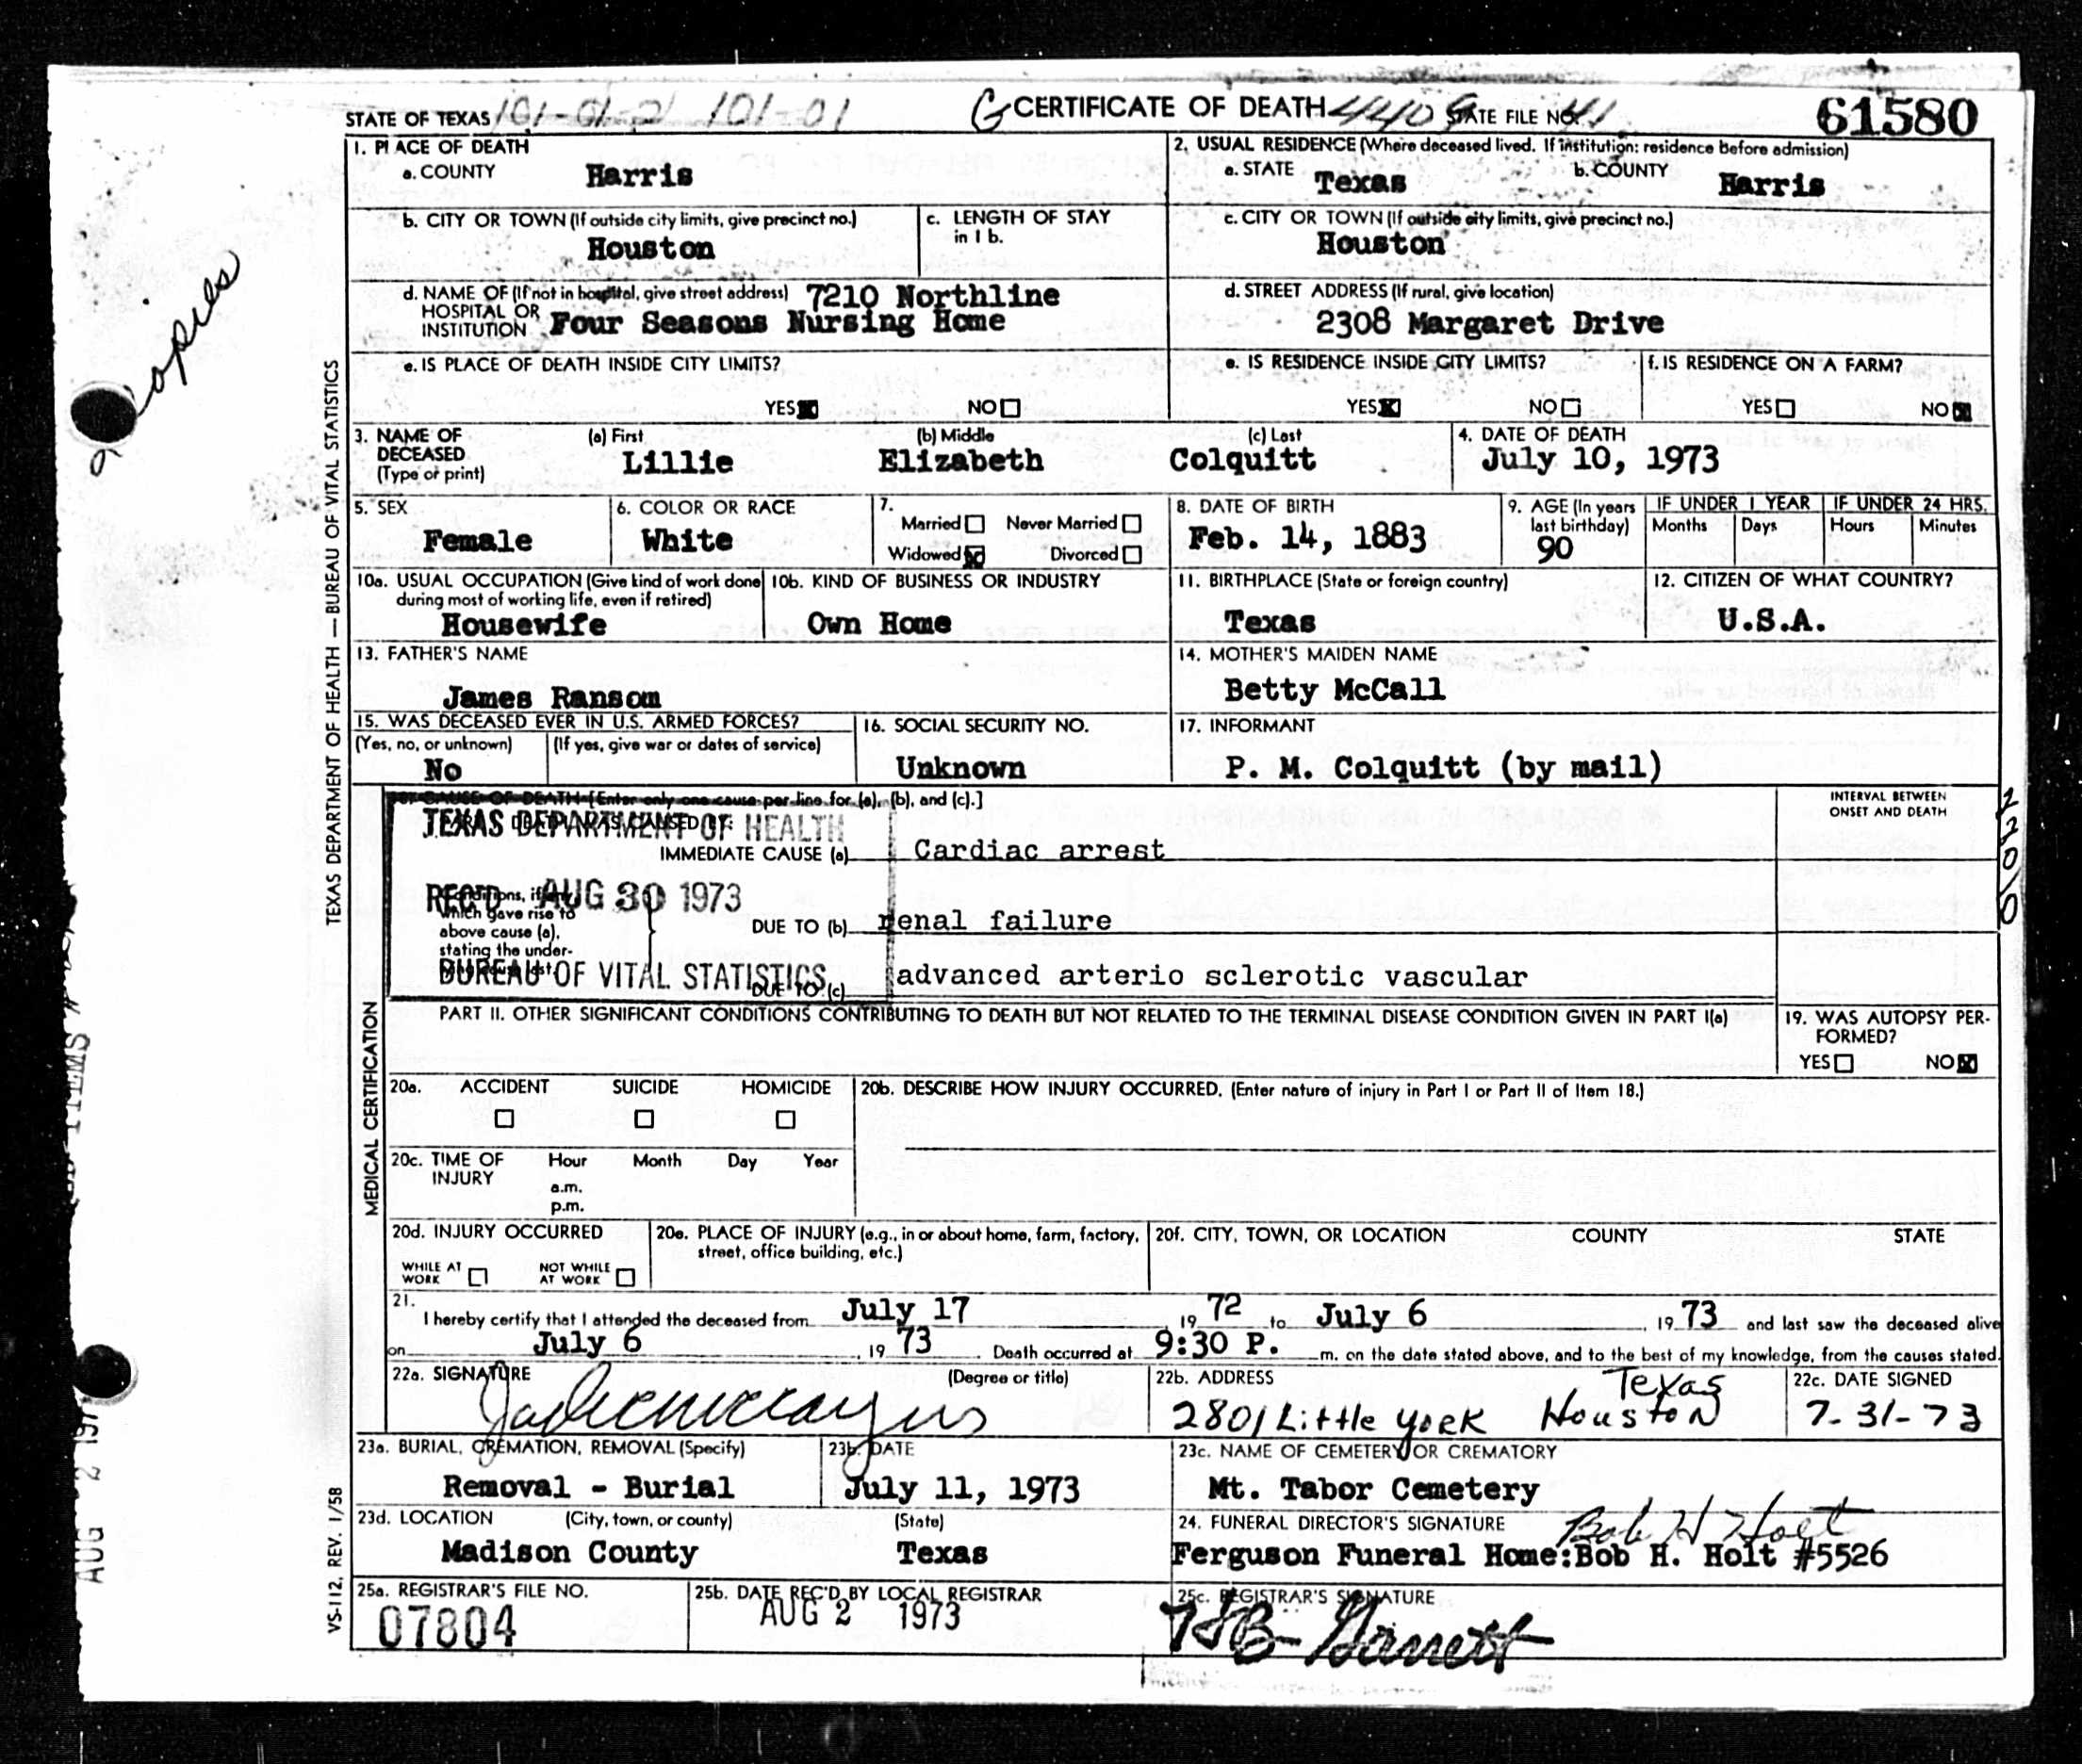 STATE OF TEXAS 101-01-2 101-01 G CERTIFICATE OF DEATH 4409 STATE FILE NO. 41 61580
1. PLACE OF DEATH
a. COUNTY Harris
2. USUAL RESIDENCE (Where deceased lived. If institution: residence before admission)
a. STATE Texas b. COUNTY Harris
b. CITY OR TOWN (If outside city limits, give precinct no.) Houston
c. LENGTH OF STAY in 1 b.
c. CITY OR TOWN (If outside city limits, give precinct no.)
Houston
d. NAME OF (If not in hospital, give street address) 7210 Northline
HOSPITAL OR
INSTITUTION Four Seasons Nursing Home
d. STREET ADDRESS (If rural, give location)
2308 Margaret Drive
e. IS PLACE OF DEATH INSIDE CITY LIMITS?
YES NO
e. IS RESIDENCE INSIDE CITY LIMITS?
YES NO
f. IS RESIDENCE ON A FARM?
YES NO
3. NAME OF DECEASED (Type or print)
(a) First Lillie
(b) Middle Elizabeth
(c) Last Colquitt
4. DATE OF DEATH
July 10, 1973
5. SEX
Female
6. COLOR OR RACE
White
7.
Married Never Married
Widowed Divorced
8. DATE OF BIRTH
Feb. 14, 1883
9. AGE (In years last birthday)
90
IF UNDER 1 YEAR
Months Days
IF UNDER 24 HRS.
Hours Minutes
10a. USUAL OCCUPATION (Give kind of work done during most of working life, even if retired)
Housewife
10b. KIND OF BUSINESS OR INDUSTRY
Own Home
11. BIRTHPLACE (State or foreign country)
Texas
12. CITIZEN OF WHAT COUNTRY?
U.S.A.
13. FATHER'S NAME
James Ransom
14. MOTHER'S MAIDEN NAME
Betty McCall
15. WAS DECEASED EVER IN U.S. ARMED FORCES?
(Yes, no, or unknown) (If yes, give war or dates of service)
No
16. SOCIAL SECURITY NO.
Unknown
17. INFORMANT
P. M. Colquitt (by mail)
18. CAUSE OF DEATH [Enter only one cause per line for (a), (b), and (c).]
INTERVAL BETWEEN
ONSET AND DEATH
TEXAS DEPARTMENT OF HEALTH
IMMEDIATE CAUSE (a) Cardiac arrest
REC'D AUG 30 1973
Conditions, if any,
which gave rise to
above cause (a),
stating the under-
DUE TO (b) renal failure
BUREAU OF VITAL STATISTICS
DUE TO (c) advanced arterio sclerotic vascular
PART II. OTHER SIGNIFICANT CONDITIONS CONTRIBUTING TO DEATH BUT NOT RELATED TO THE TERMINAL DISEASE CONDITION GIVEN IN PART I(a)
19. WAS AUTOPSY PER-
FORMED?
YES NO
20a. ACCIDENT SUICIDE HOMICIDE
20b. DESCRIBE HOW INJURY OCCURRED. (Enter nature of injury in Part I or Part II of Item 18.)
20c. TIME OF INJURY Hour Month Day Year
a.m.
p.m.
20d. INJURY OCCURRED
WHILE AT WORK NOT WHILE AT WORK
20e. PLACE OF INJURY (e.g., in or about home, farm, factory, street, office building, etc.)
20f. CITY, TOWN, OR LOCATION COUNTY STATE
21.
I hereby certify that I attended the deceased from July 17, 19 72 to July 6, 19 73 and last saw the deceased alive
on July 6, 19 73. Death occurred at 9:30 P. m. on the date stated above, and to the best of my knowledge, from the causes stated.
22a. SIGNATURE (Degree or title)
22b. ADDRESS
2801 Little York Houston Texas
22c. DATE SIGNED
7-31-73
23a. BURIAL, CREMATION, REMOVAL (Specify)
Removal - Burial
23b. DATE
July 11, 1973
23c. NAME OF CEMETERY OR CREMATORY
Mt. Tabor Cemetery
23d. LOCATION (City, town, or county) (State)
Madison County Texas
24. FUNERAL DIRECTOR'S SIGNATURE Bob H Holt
Ferguson Funeral Home:Bob H. Holt #5526
25a. REGISTRAR'S FILE NO.
07804
25b. DATE REC'D BY LOCAL REGISTRAR
AUG 2 1973
25c. REGISTRAR'S SIGNATURE
Garrett
TEXAS DEPARTMENT OF HEALTH — BUREAU OF VITAL STATISTICS
MEDICAL CERTIFICATION
VS-112, REV. 1/58
2 copies
AUG 2 197
2200